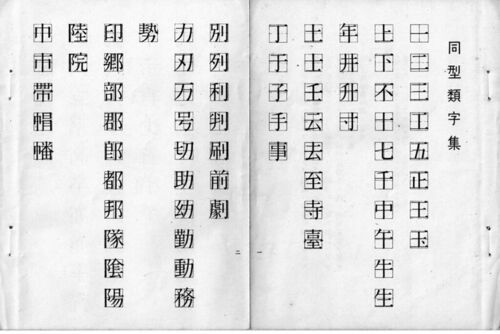 同型類字集
一二三工五正王玉
上下不十七千中午牛生
年井升寸
土士壬云去至寺臺
丁于子手事
一
別列利判刷前劇
力刃万号切助幼勤動務
勢
印鄕部郡郎都邦隊陰陽
陸院
巾市帶帽幡
二